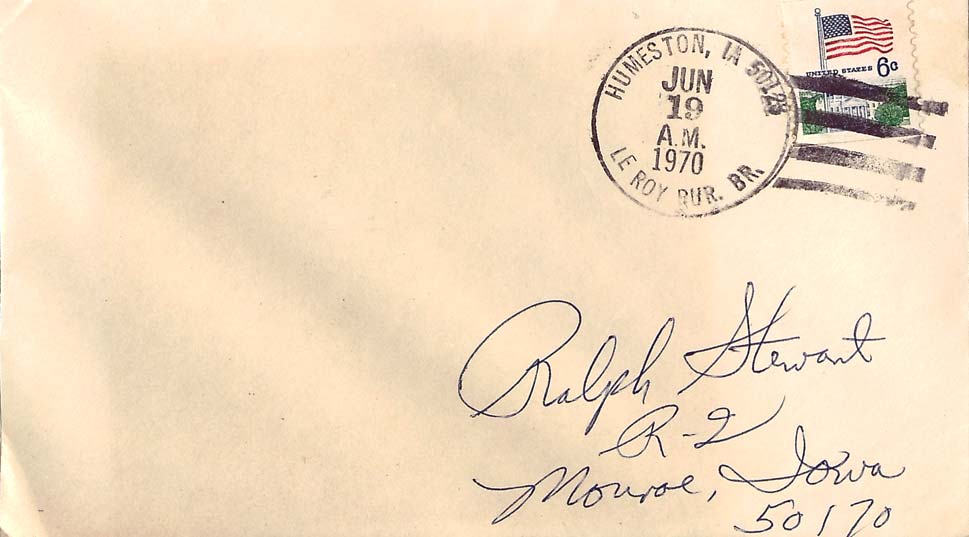 HUMESTON, IA 50123
JUN
19
A.M.
1970
LE ROY RUR. BR.
UNITED STATES 6c
Ralph Stewart
R-2
Monroe, Iowa
50170